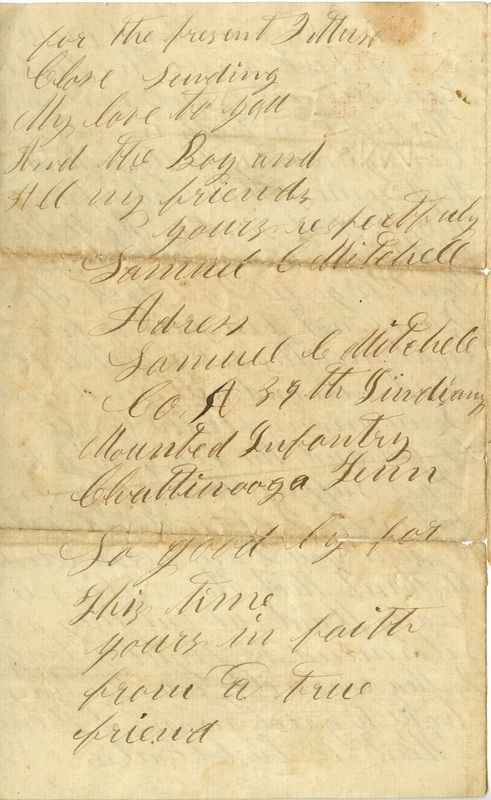 for the present I must
Close Sending
My love to you
And the Boy and
All my friends
yours respectfuly
Samuel C Mitchell
Adress
Samuel C Mitchell
Co, A 39th Indiana
Mounted Infantry
Chattinooga Tenn
So good by for
This time
yours in faith
from a true
friend